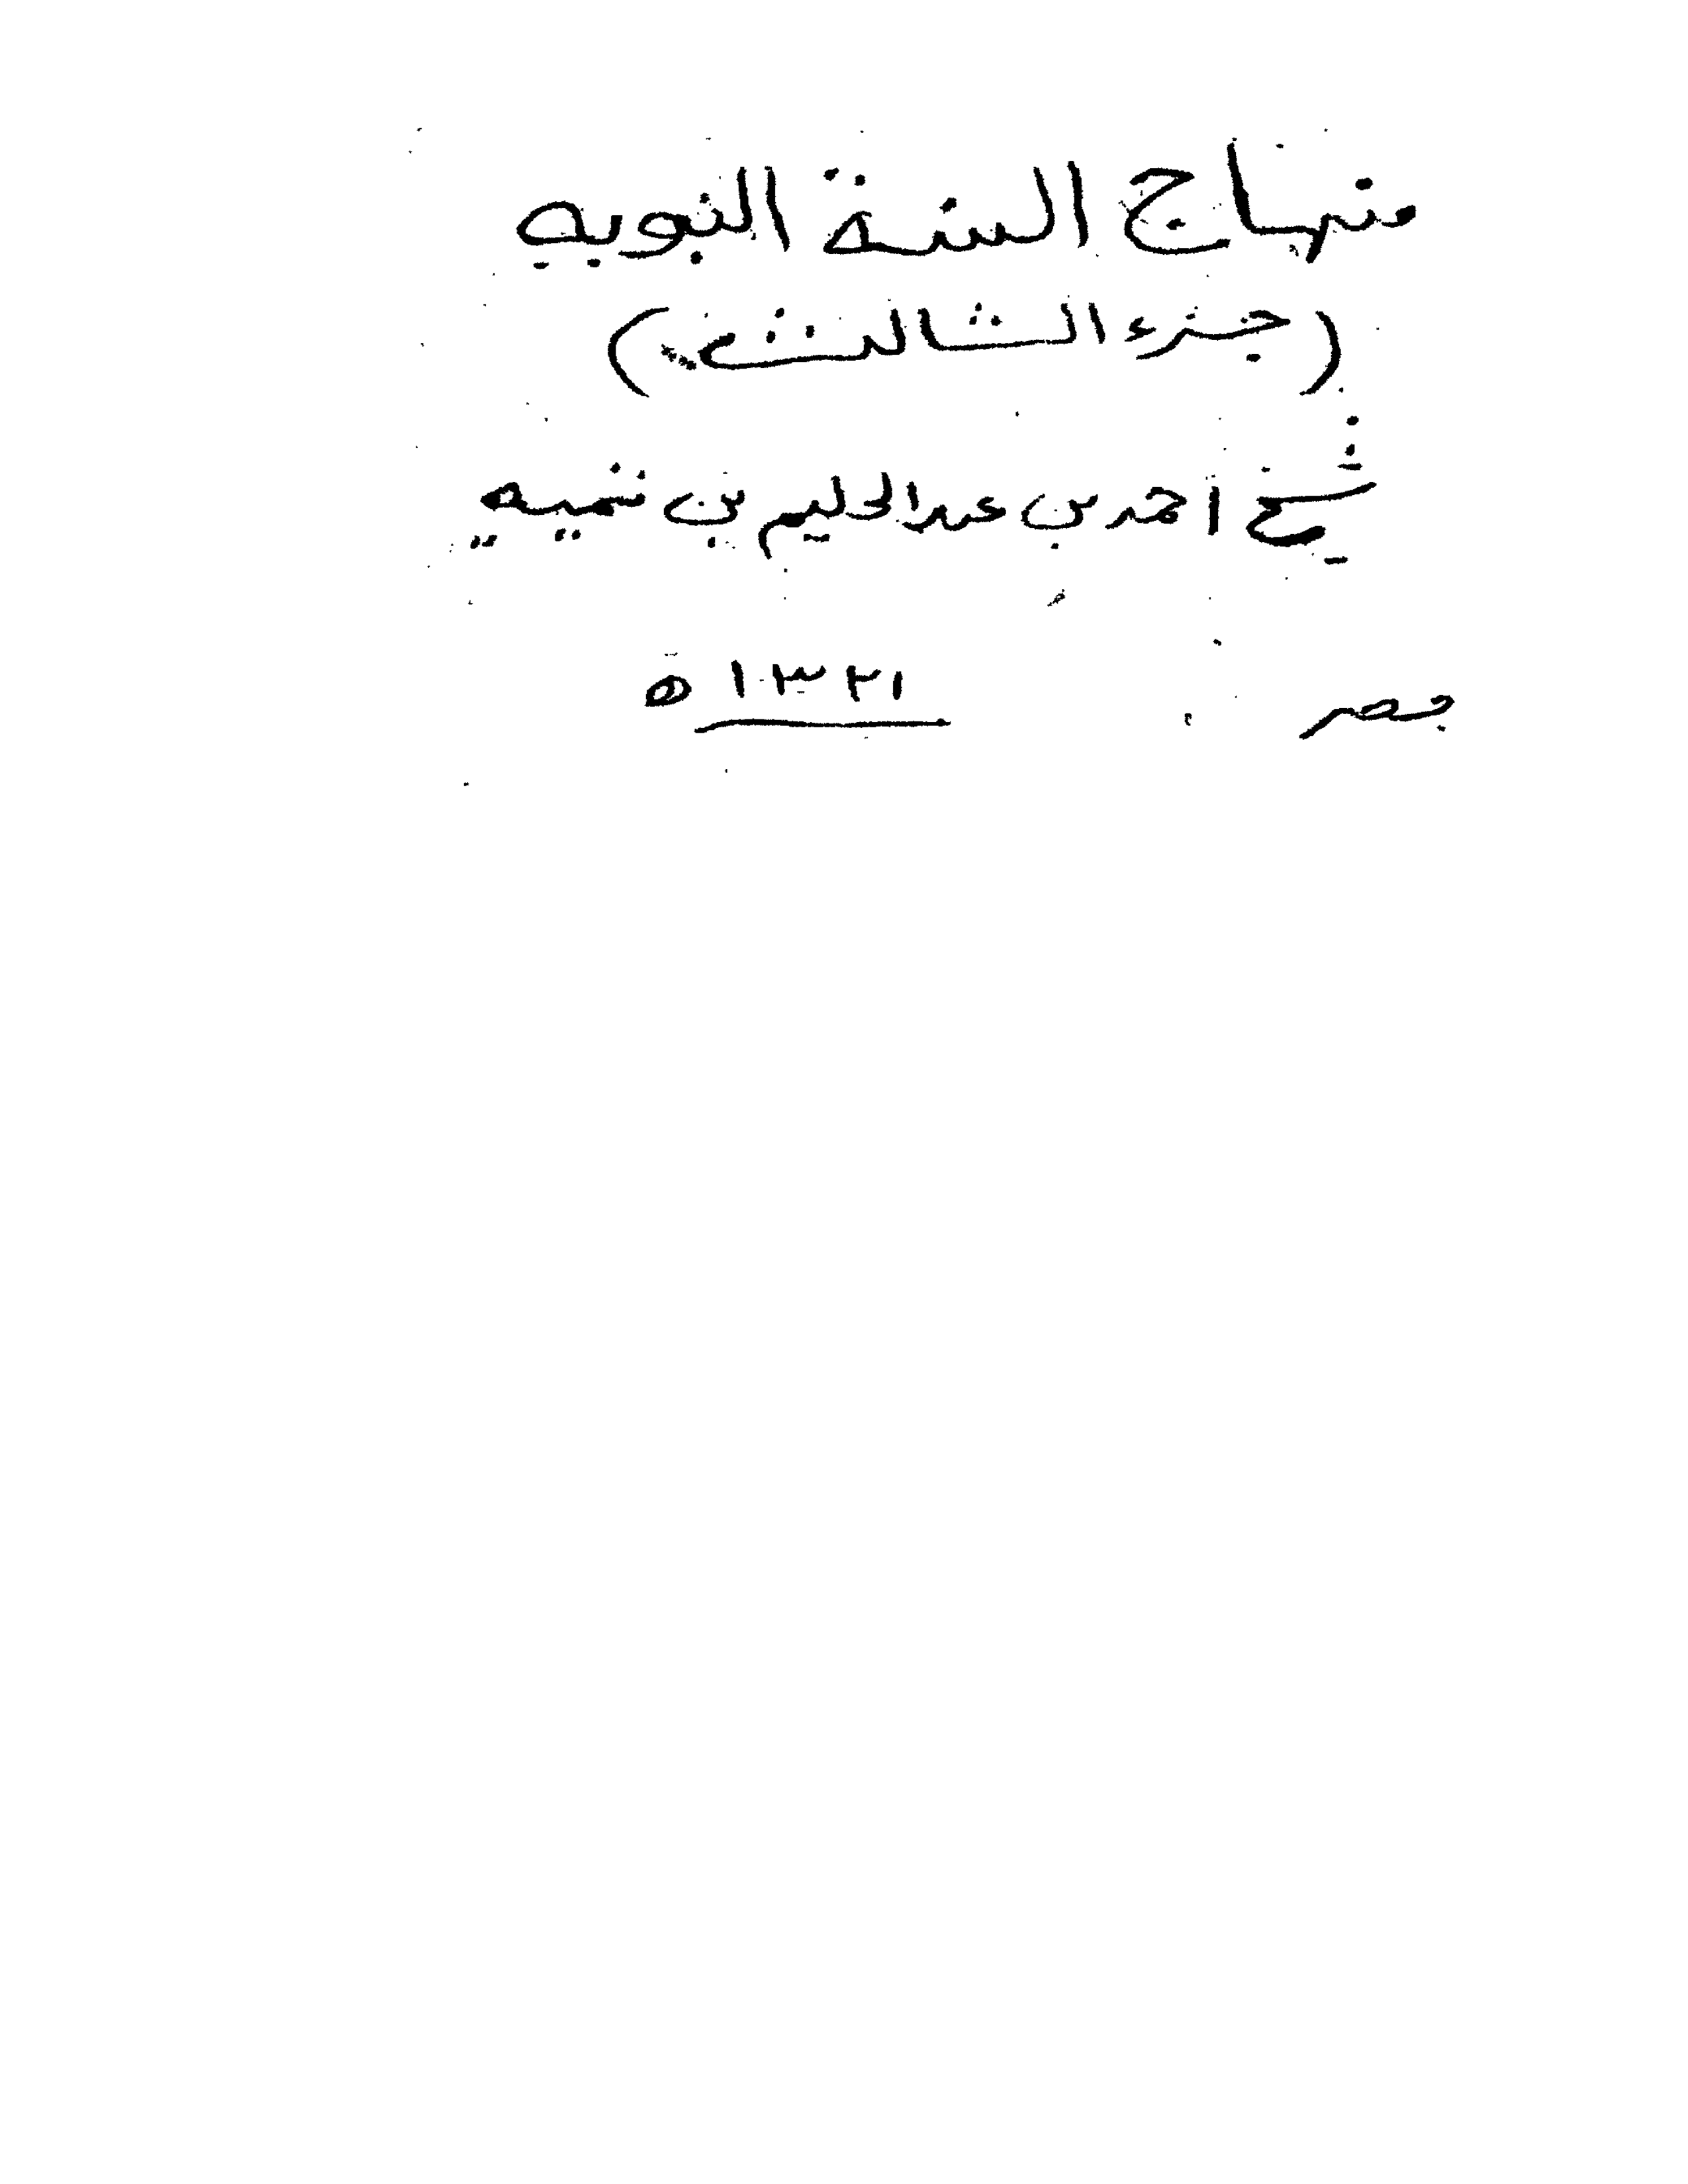 منهاج السنة النبويه
(جزء الثالث)
شيخ احمد بن عبدالحليم بن تيميه
بمصر ١٣٢١ ه